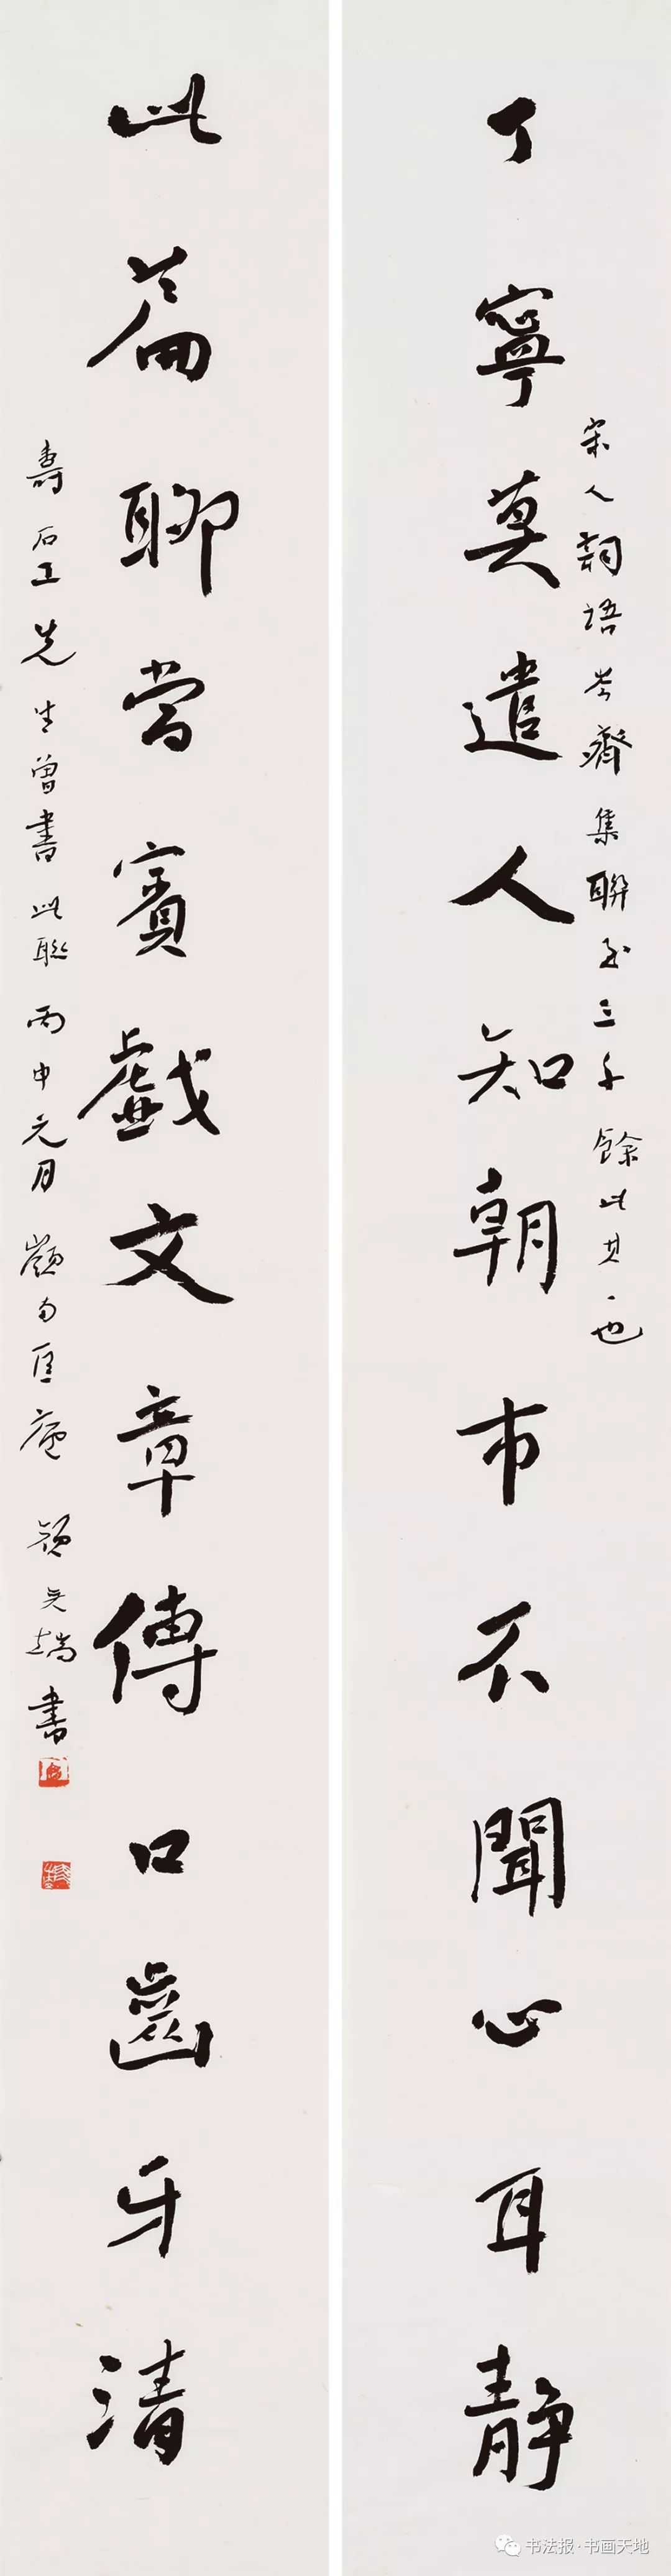 丁寧莫遣人知朝市不聞心耳静
宋人詞語岑齋集聯至三千餘此其一也
此篇聊當賓戲文章傳口齒牙清
壽石工先生曾書此聯丙申元月嶺南匡庵書
书法报·书画天地